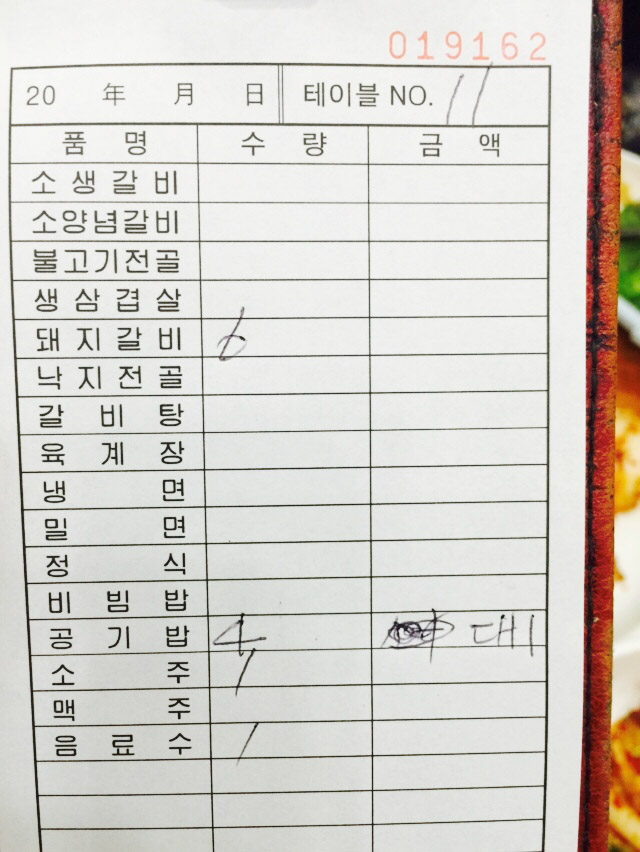 019162
20 年 月 日 테이블 NO. 11
품 명 수 량 금 액
소 생 갈 비
소양념갈비
불고기전골
생 삼 겹 살
돼 지 갈 비 6
낙 지 전 골
갈 비 탕
육 계 장
냉 면
밀 면
정 식
비 빔 밥
공 기 밥 4 대
소 주 1
맥 주
음 료 수 1